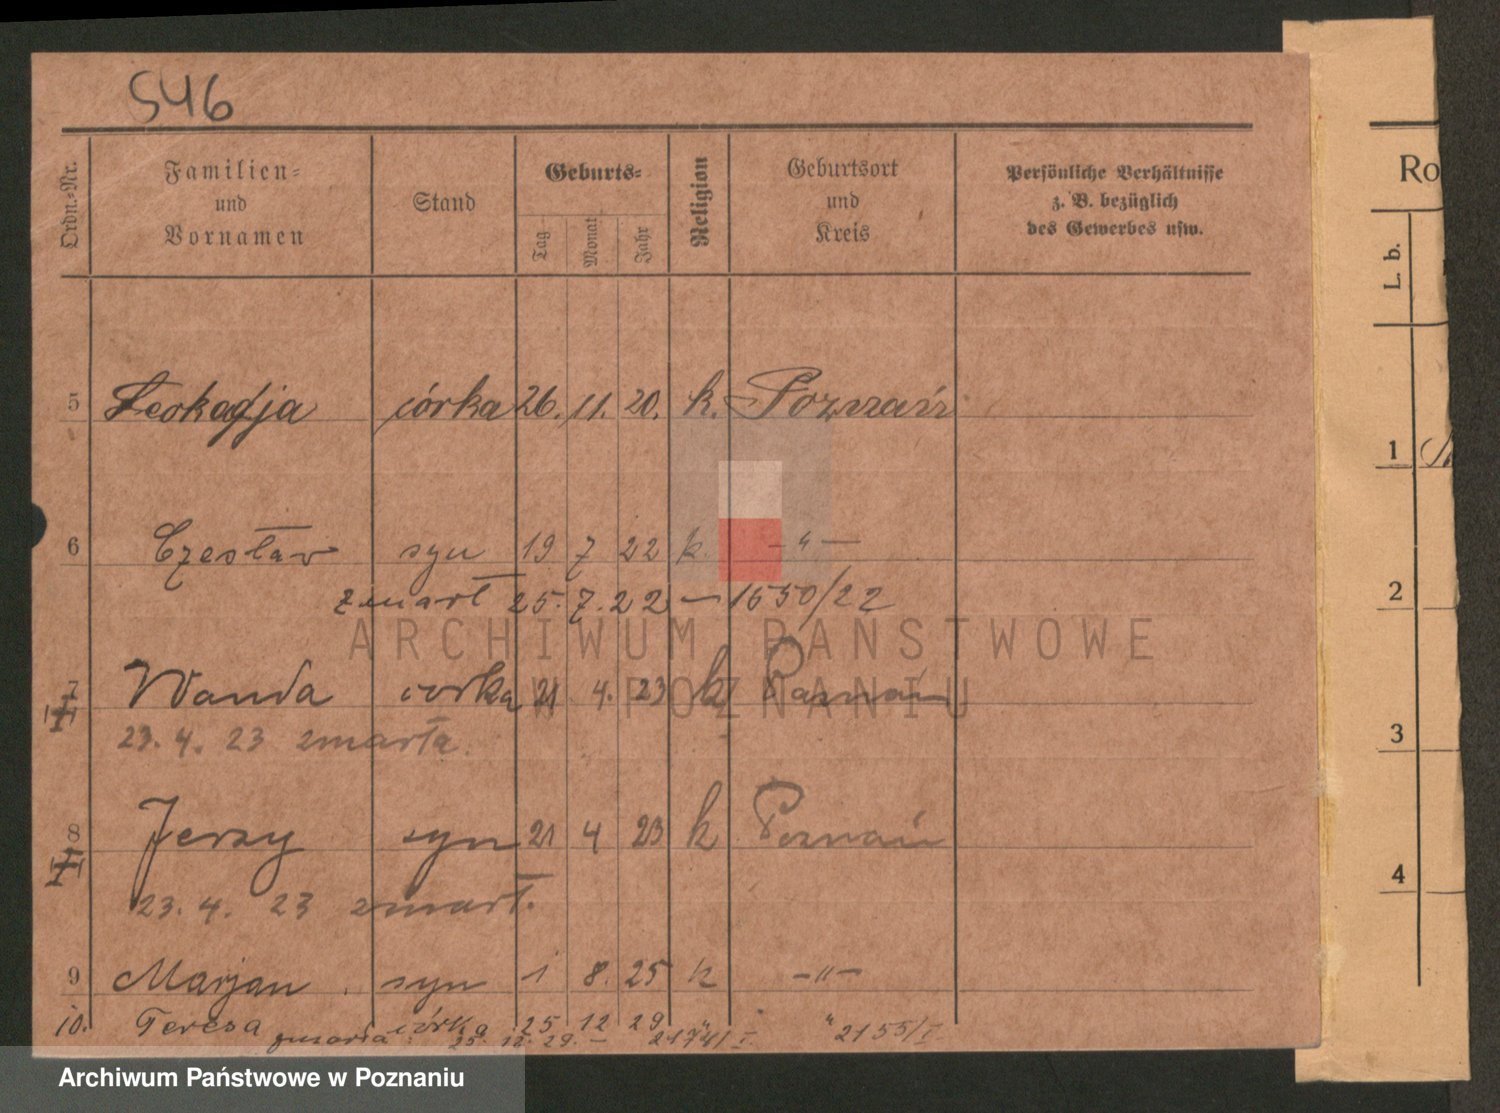 546
Ordn.-Nr.
Familien-
und
Vornamen
Stand
Geburts-
Tag
Monat
Jahr
Religion
Geburtsort
und
Kreis
Persönliche Verhältnisse
z. B. bezüglich
des Gewerbes usw.
5 Leokadja córka 26. 11. 20. k. Poznań
6 Czesław syn 19 7 22 k. -"-
zmarł 25. 7. 22 - 1650/22
ARCHIWUM PAŃSTWOWE
W POZNANIU
7 Wanda córka 21 4. 23 k Poznań
23. 4. 23 zmarła.
8 Jerzy syn 21 4 23 k Poznań
23. 4. 23 zmarł.
9 Marjan syn 1 8. 25 k -"-
10. Teresa córka 25 12 29 " " 2155/I
zmarła 25. 12. 29. -
Ro
L. b.
1
2
3
4
Archiwum Państwowe w Poznaniu